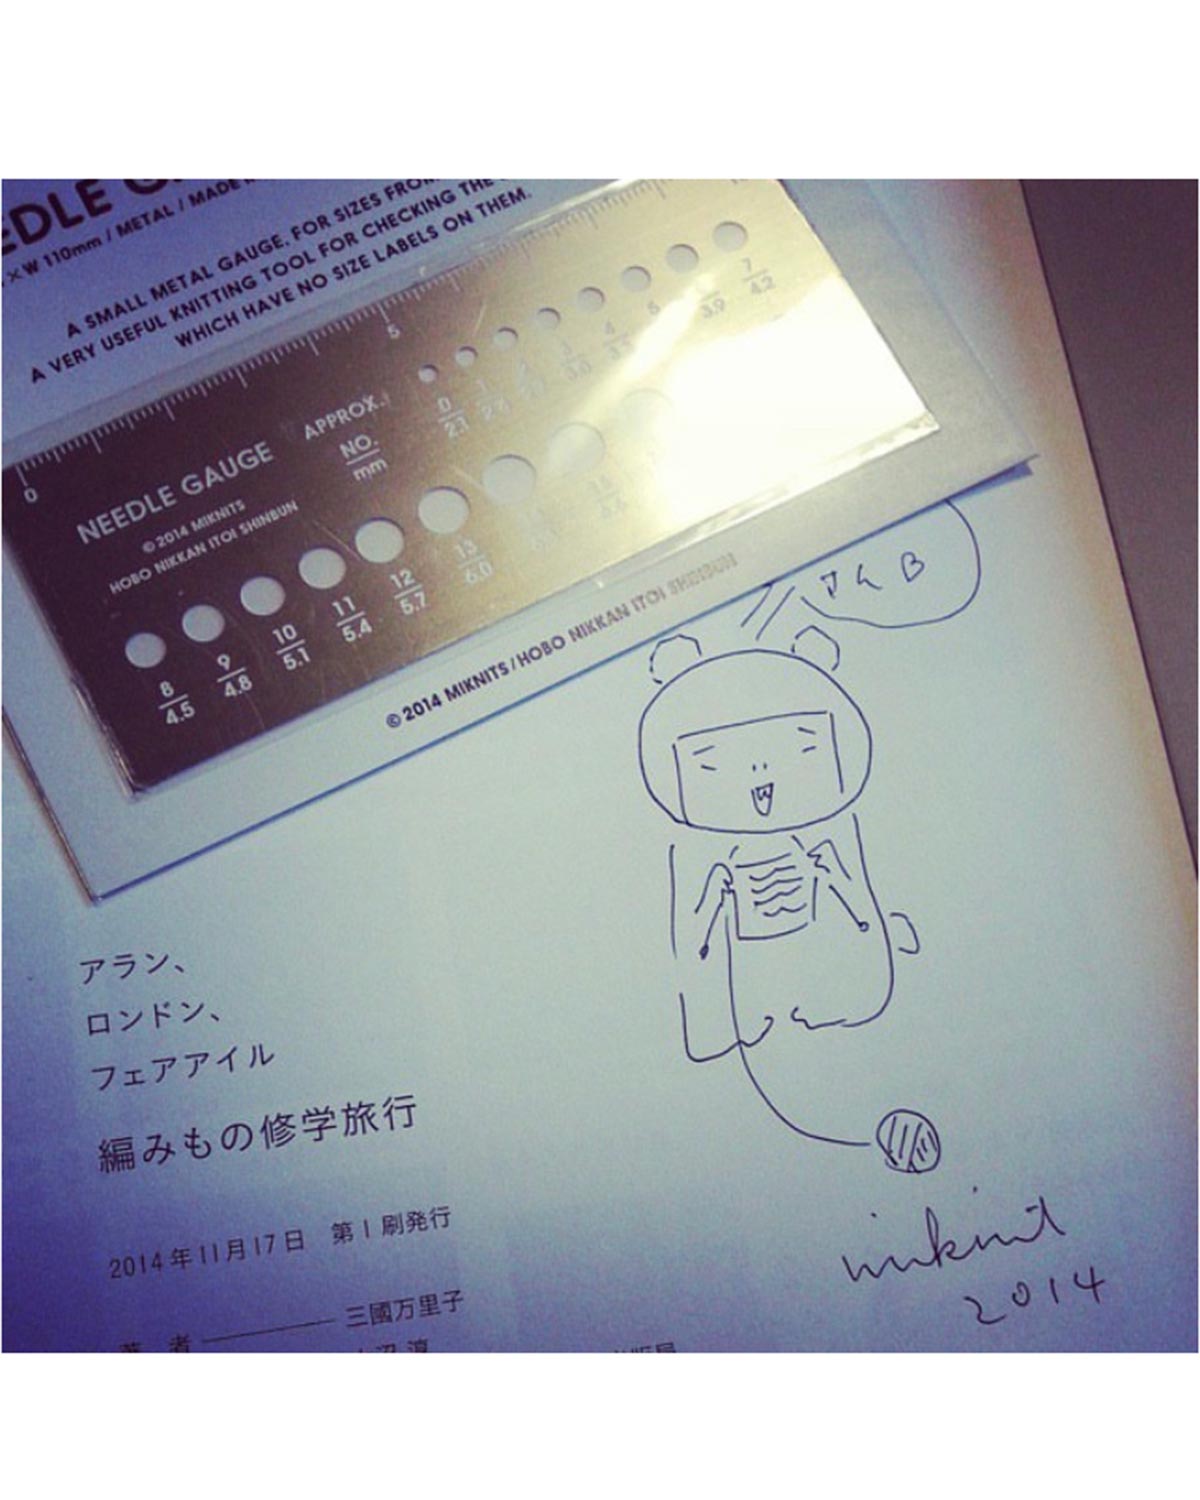 × W 110mm / METAL / MADE
A SMALL METAL GAUGE. FOR SIZES FROM
A VERY USEFUL KNITTING TOOL FOR CHECKING THE
WHICH HAVE NO SIZE LABELS ON THEM.
0 5
NEEDLE GAUGE
©2014 MIKNITS
HOBO NIKKAN ITOI SHINBUN
APPROX.
NO.
mm
0 1 4 6 7
2.1 3.0 3.9 4.2
8 9 10 11 12 13
4.5 4.8 5.1 5.4 5.7 6.0
©2014 MIKNITS / HOBO NIKKAN ITOI SHINBUN
アラン、
ロンドン、
フェアアイル
編みもの修学旅行
2014年11月17日 第1刷発行
著 者 ——— 三國万里子
miknit
2014